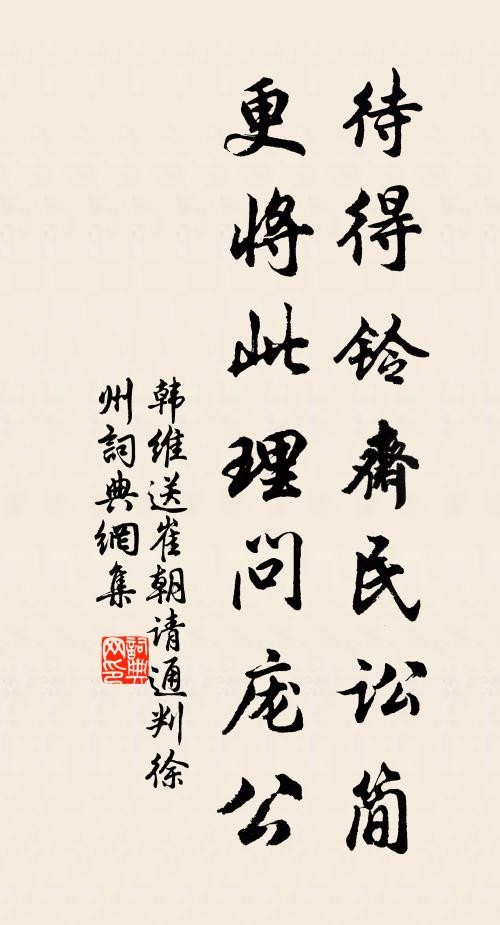 待得铃齋民讼简
更将此理问庞公
韩维送崔朝请通判徐
州詞典網集
詞典網印